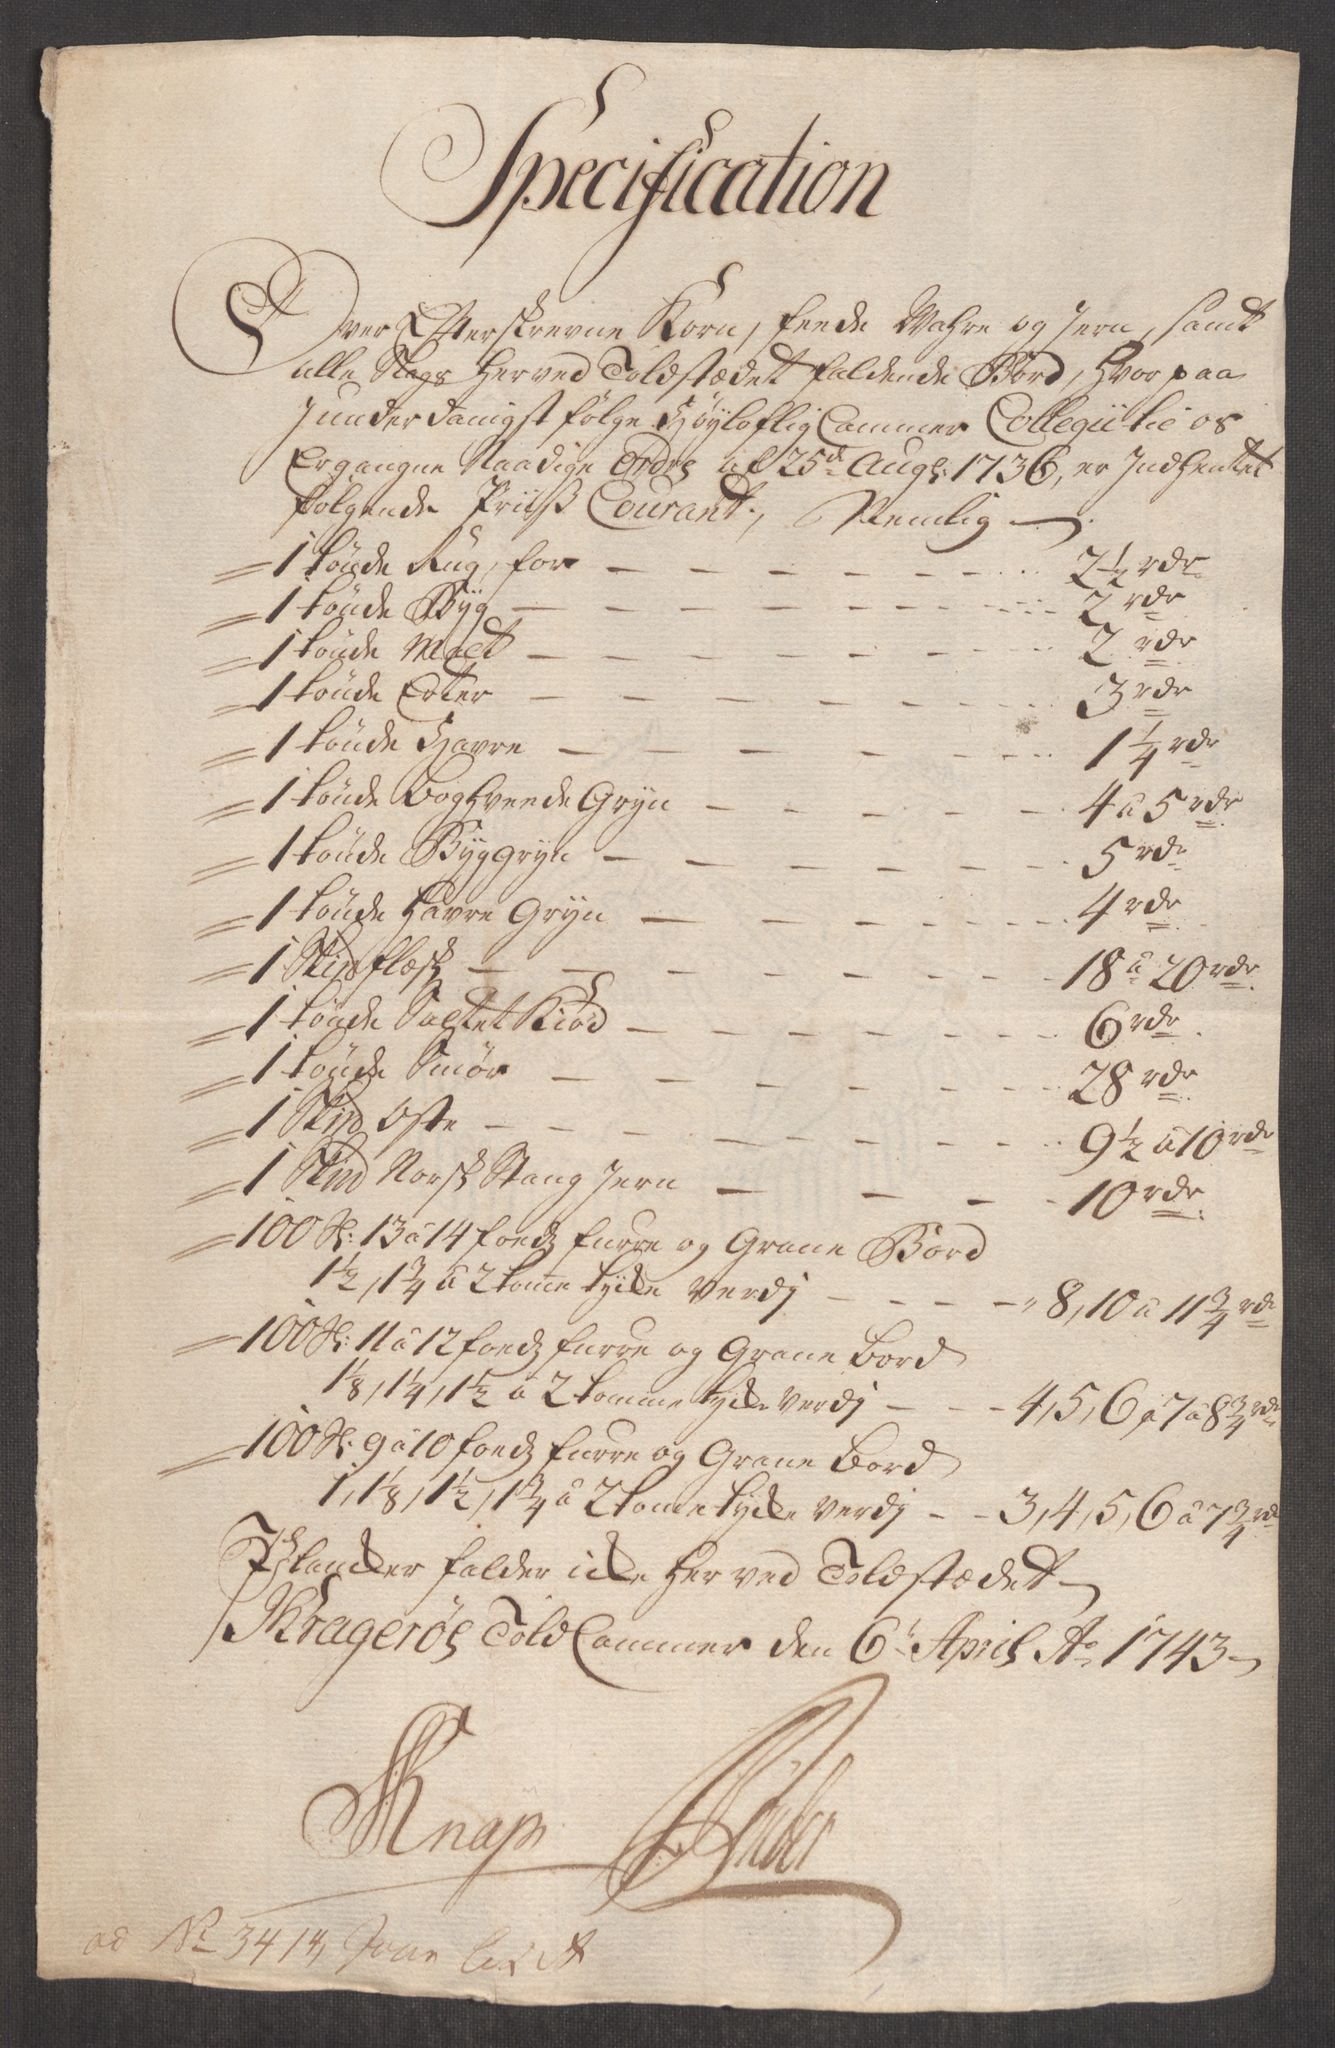 Specification
Over Efterskrevne Korn, feede Wahre og Jern, samt
alle Slags herved Toldstædet faldende Bord, hvorpaa
I underdanigst følge Høyloflig Cammer Collegii til os
Ergangne Naadige Ordre af 25de Aug: 1736, er Indhentet
følgende Priiß Courant, Nemlig
1 tønde Rug, for - - - 2 1/2 rdr
1 tønde Byg - - - 2 rdr
1 tønde Malt - - - 2 rdr
1 tønde Erter - - - 3 rdr
1 tønde Havre - - - 1 1/4 rdr
1 tønde boghveede Gryn - - - 4 a 5 rdr
1 tønde Byggryn - - - 5 rdr
1 tønde Havre Gryn - - - 4 rdr
1 Skpd flæsk - - - 18 a 20 rdr
1 tønde Saltet Kiød - - - 6 rdr
1 tønde Smør - - - 28 rdr
1 Skpd Oste - - - 9 1/2 a 10 rdr
1 Skpd Norsk Stang Jern - - - 10 rdr
100 St: 13 a 14 foedz furre og Grane Bord
1 1/2, 1 3/4 a 2 tomme tycke Verdj - - - 8, 10 a 11 3/4 rdr
100 St: 11 a 12 foedz furre og Grane bord
1 1/8, 1 1/4, 1 1/2 a 2 tomme tycke Verdj - - - 4, 5, 6 a 7 a 8 3/4 rdr
100 St: 9 a 10 foedz furre og Grane bord
1, 1 1/8, 1 1/2, 1 3/4 a 2 tomme tycke Verdj - - 3, 4, 5, 6 a 7 3/4 rdr
Plancker falder icke her ved Toldstædet
Kragerøes Told Cammer den 6t April Ao 1743
Knap
ad No 3414